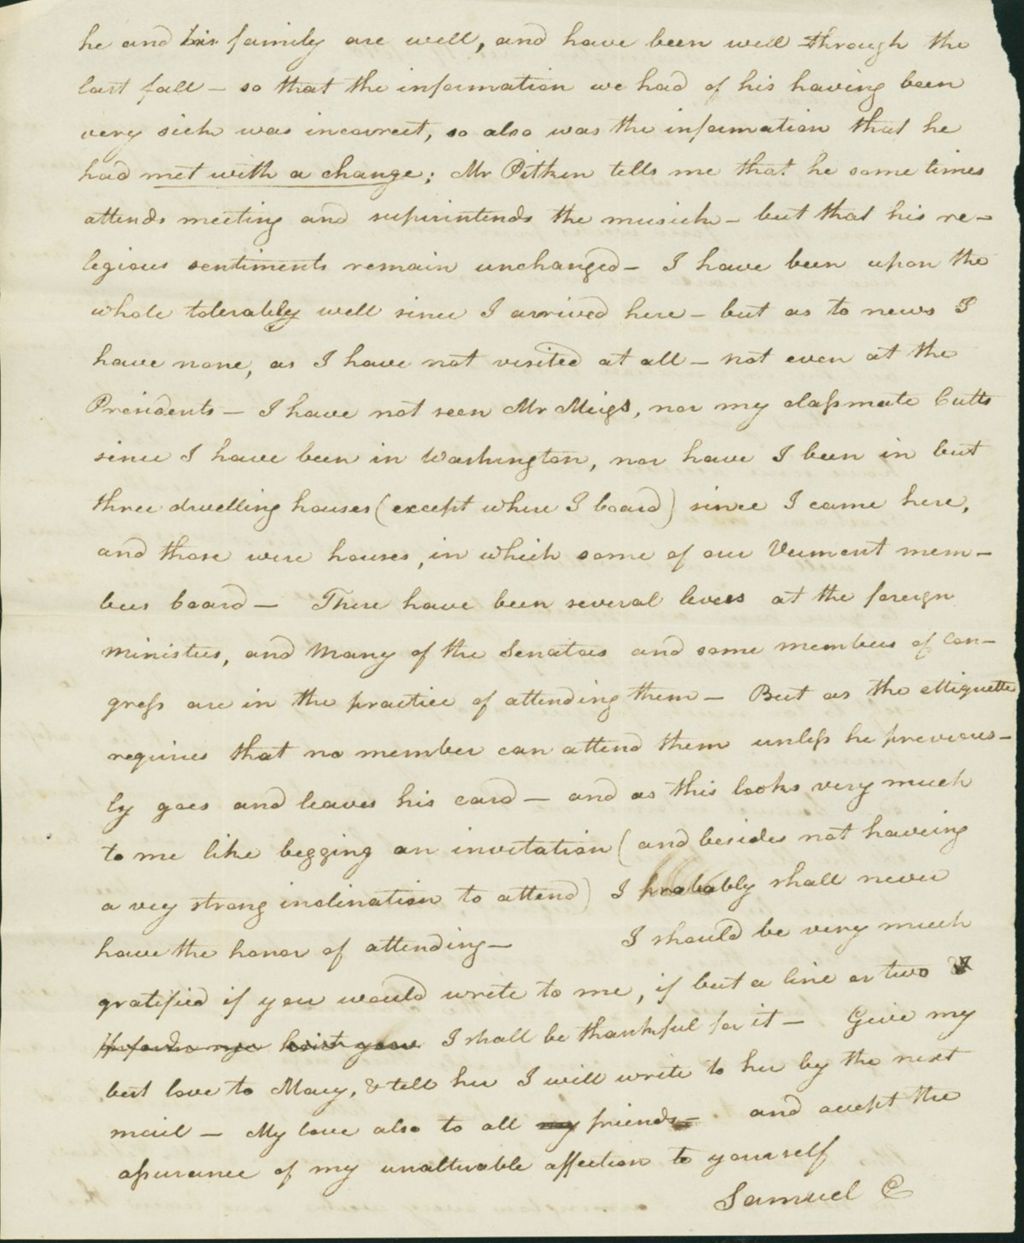 he and his family are well, and have been well through the
last fall – so that the information we had of his having been
very sick was incorrect, so also was the information that he
had met with a change; Mr Pitkin tells me that he some times
attends meeting and superintends the musick – but that his re-
ligious sentiments remain unchanged – I have been upon the
whole tolerably well since I arrived here – but as to news I
have none, as I have not visited at all – not even at the
Presidents – I have not seen Mr Meigs, nor my classmate Cutts
since I have been in Washington, nor have I been in but
three dwelling houses (except where I board) since I came here,
and those were houses, in which some of our Vermont mem-
bers board – There have been several levees at the foreign
ministers, and many of the Senators and some members of Con-
gress are in the practice of attending them – But as the ettiquette
requires that no member can attend them unless he previous-
ly goes and leaves his card – and as this looks very much
to me like begging an invitation (and besides not haveing
a very strong inclination to attend) I probably shall never
have the honor of attending – I should be very much
gratified if you would write to me, if but a line or two &
I shall be thankful for it – Give my
best love to Mary, & tell her I will write to her by the next
mail – My love also to all my friends – and accept the
assurance of my unalterable affection to yourself
Samuel C